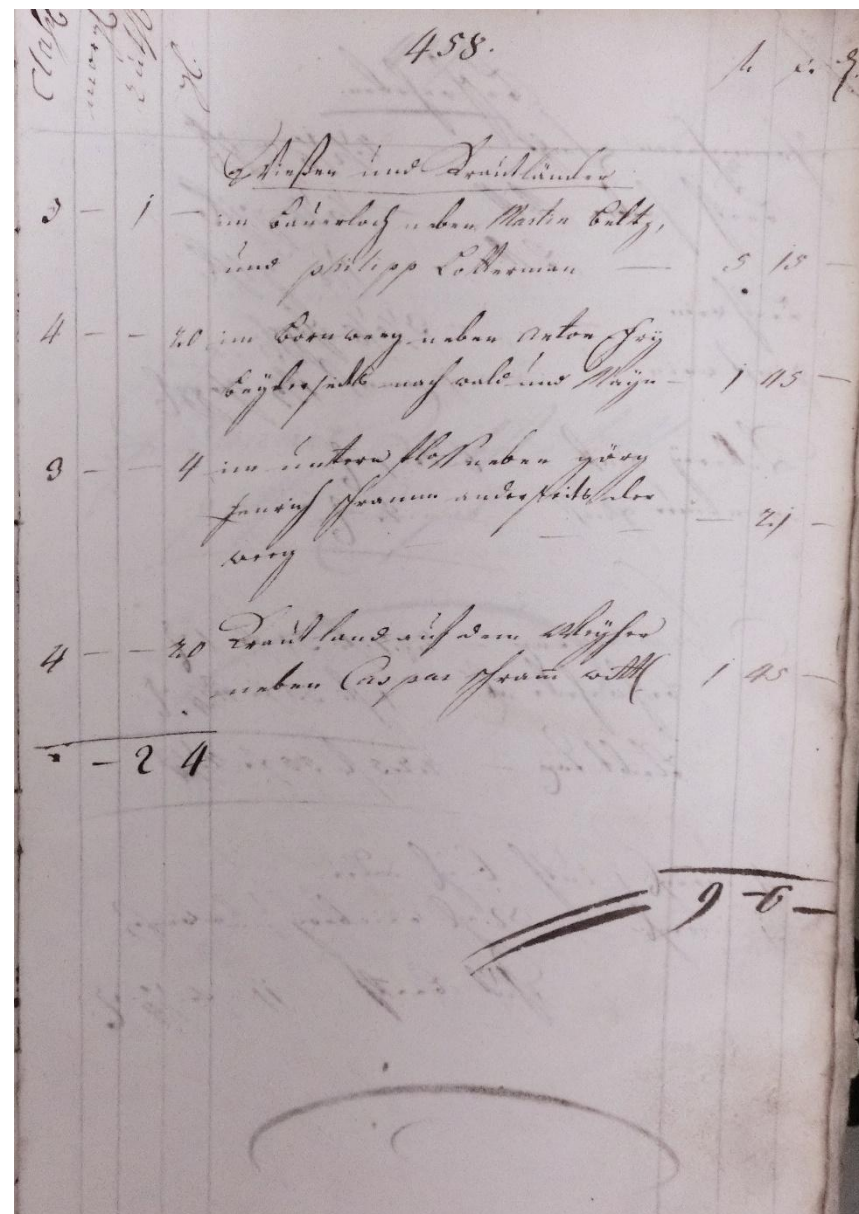 458.
Class morg Ruth
Wießen und Krautländer
3 — 1 — im Bauerloch neben Martin Beltz,
und Philipp Lotterman — 5 15 —
4 — — 20 im Bornweeg neben Anton
beyderseits nach wald und Mayn — 1 45 —
3 — — 4 im untern neben görg
Henrich Schramm anderseits der
weeg — — — 21 —
4 — — 20 Krautland auf dem Weyher
neben Caspar Schram witt 1 45 —
— 2 4
9 6 —